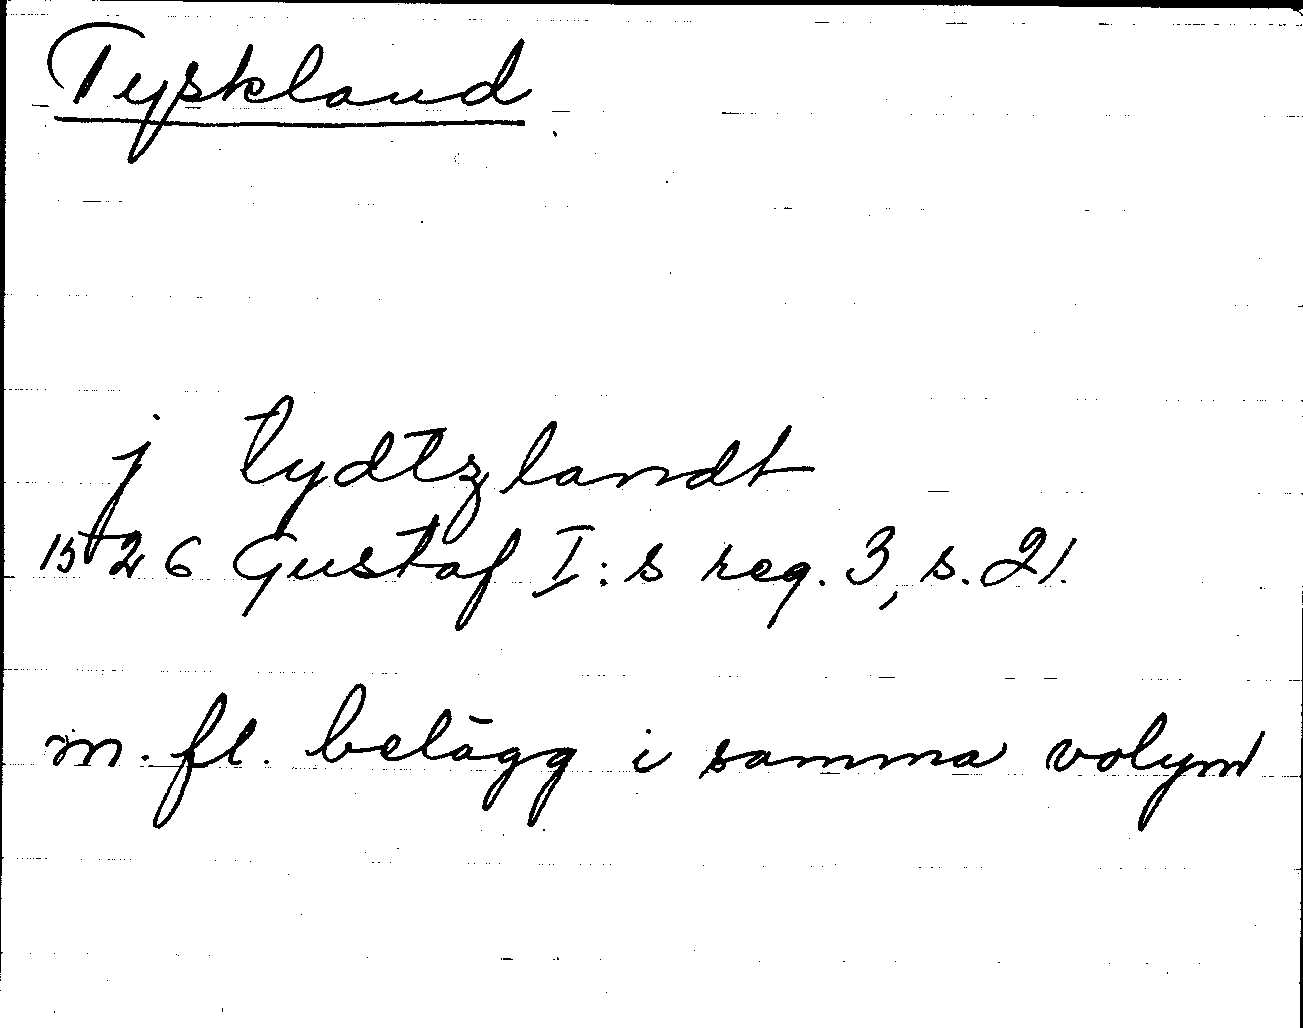 Tyskland
j tydtzlandt
1526 Gustaf I:s reg. 3, s. 21.
m. fl. belägg i samma volym